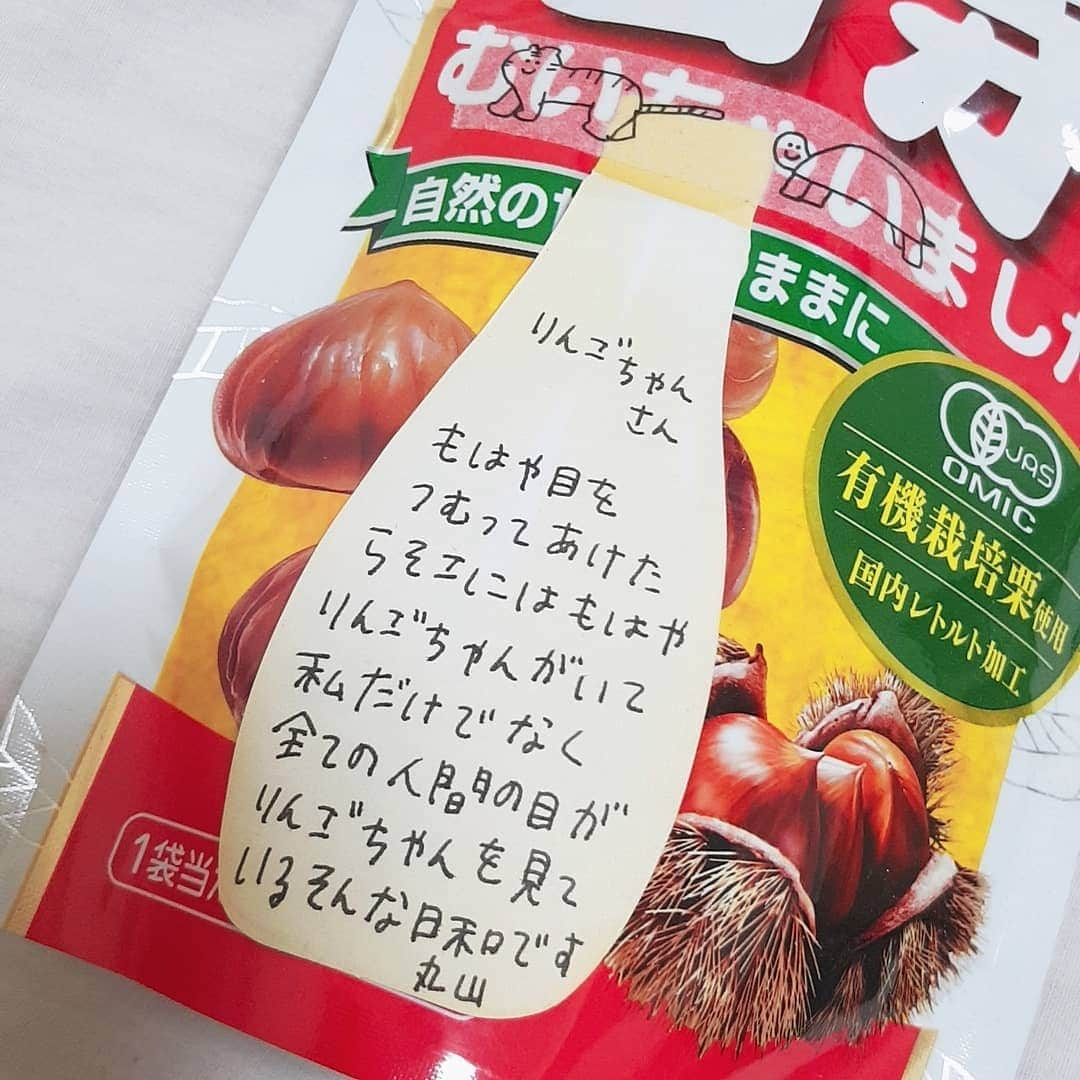 むいちゃいました
自然の
ままに
りんごちゃん
さん
もはや目を
つむってあけた
らそこにはもはや
りんごちゃんがいて
私だけでなく
全ての人間の目が
りんごちゃんを見て
いるそんな日和です
丸山
JAS
OMIC
有機栽培栗使用
国内レトルト加工
1袋当